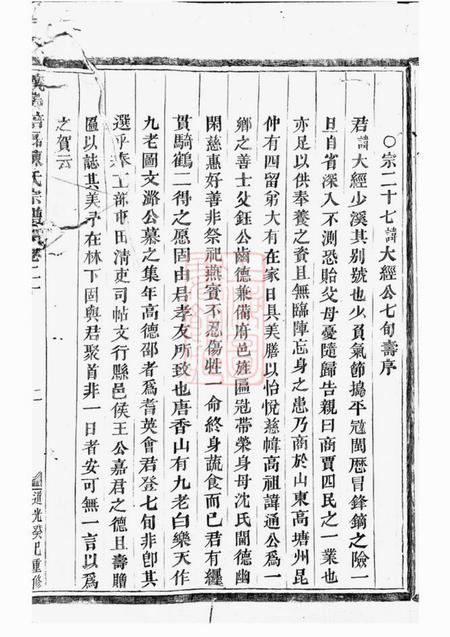 ○宗二十七諱大經公七旬壽序
君諱大經少溪其别號也少負氣節搗平冦閩歴冒鋒鏑之險一
旦自省深入不測恐貽父母憂隨歸告親曰商賈四民之一業也
亦足以供奉養之資且無臨陣忘身之患乃商於山東高塘州昆
仲有四留弟大有在家日具美膳以怡悅慈幃高祖諱通公爲一
鄉之善士父鈺公齒德兼備府邑旌匾冠帶榮身母沈氏閫德幽
閑慈惠好善非祭祀燕賓不忍傷牲一命終身蔬食而已君有纒
貫騎鶴二得之愿固由君孝友所致也唐香山有九老白樂天作
九老圖文潞公慕之集年高德邵者爲耆英會君登七旬非卽其
選乎奉工部屯田清吏司帖文行縣邑侯王公嘉君之德且壽贈
匾以誌其美予在林下固與君聚首非一日者安可無一言以爲
之賀云
陳氏宗譜卷二
一
道光癸巳重修